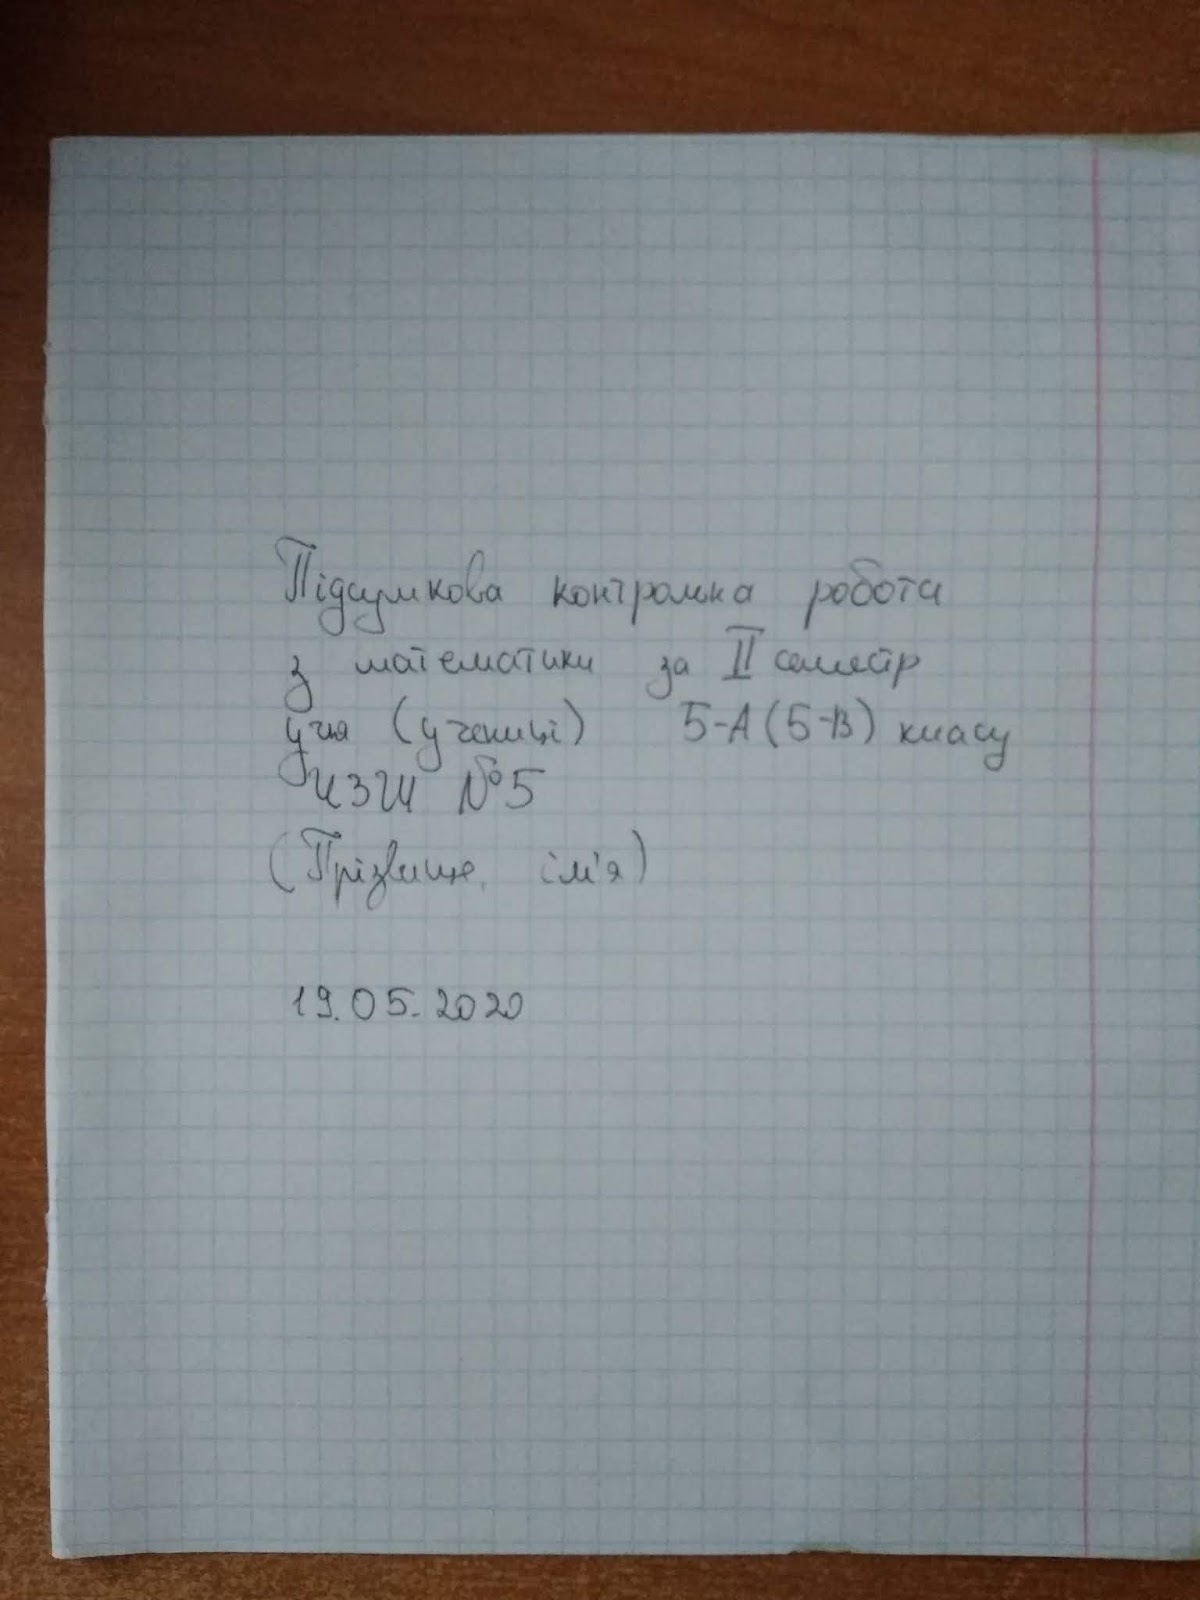 Підсумкова контрольна робота
з математики за II семестр
учня (учениці) 5-А (5-В) класу
ЧЗШ №5
(Прізвище, ім'я)
19.05.2020